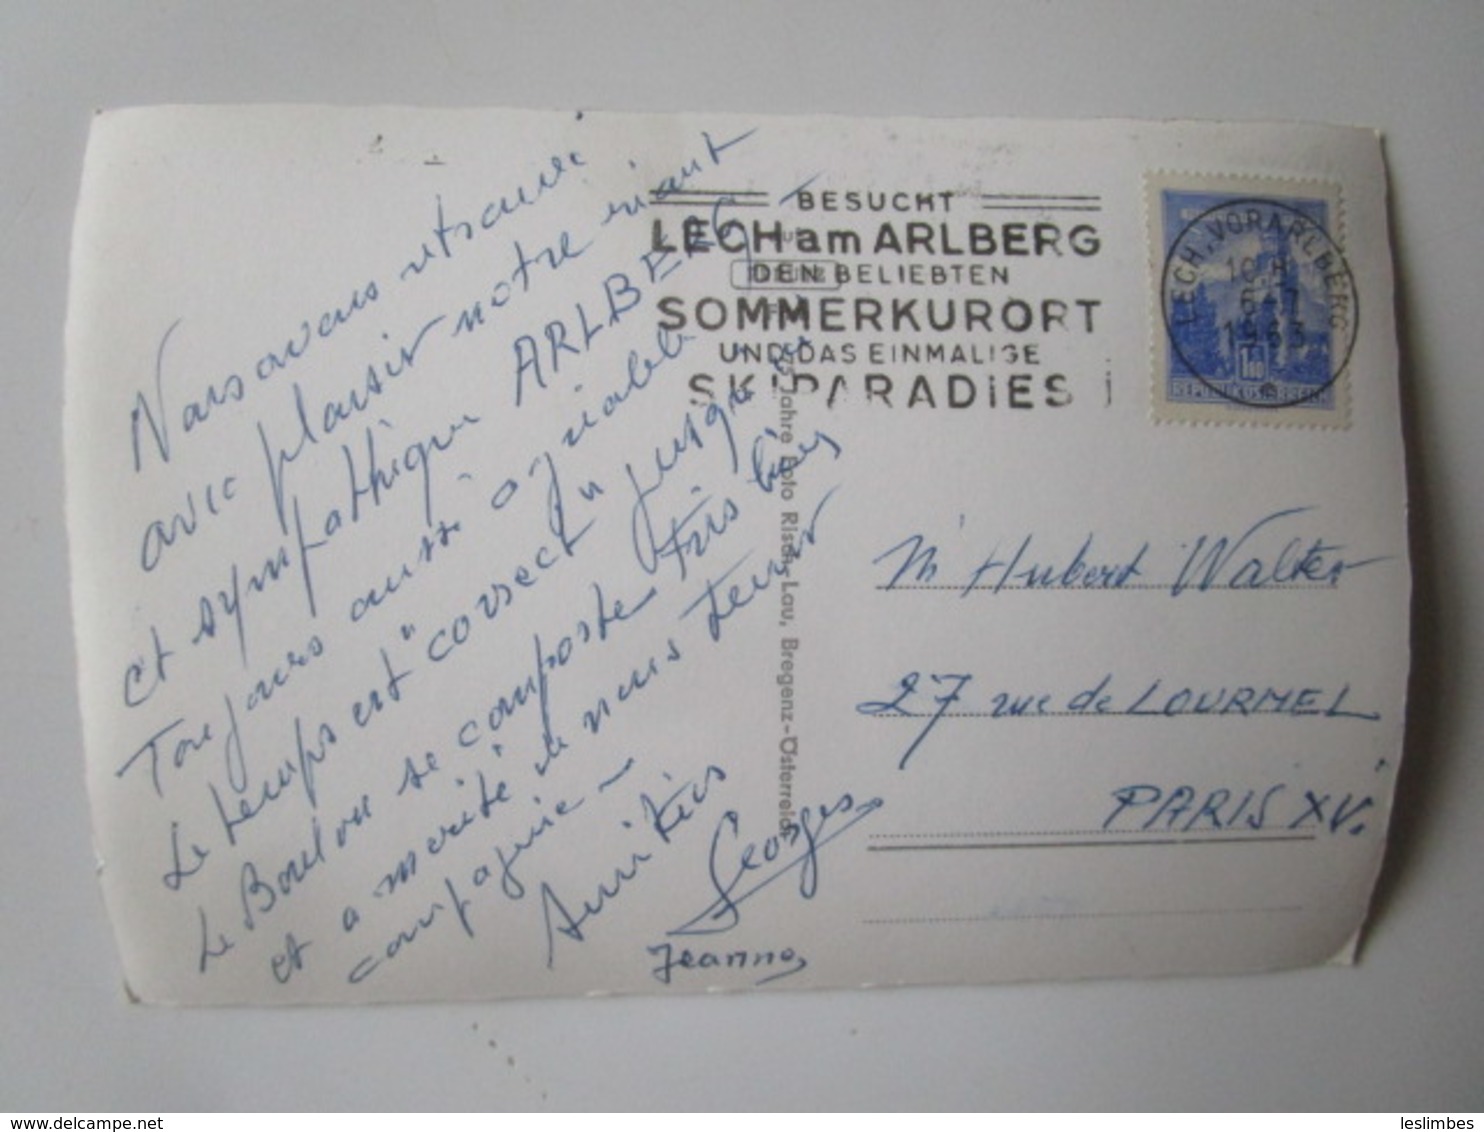 Nous avons retrouvé
avec plaisir notre riant
et sympathique ARLBERG -
Toujours aussi agréable
Le temps est "correct" jusque
Le Boulou se comporte très bien
et a mérité de nous tenir
compagnie -
Amitiés
Georges
Jeanne
BESUCHT
LECH am ARLBERG
DEN BELIEBTEN
SOMMERKURORT
UND DAS EINMALIGE
SKIPARADIES
LECH, VORARLBERG
1963
75 Jahre Foto Risch-Lau, Bregenz-Österreich
M Hubert Walter
27 rue de LOURMEL
PARIS XV.
leslimbes